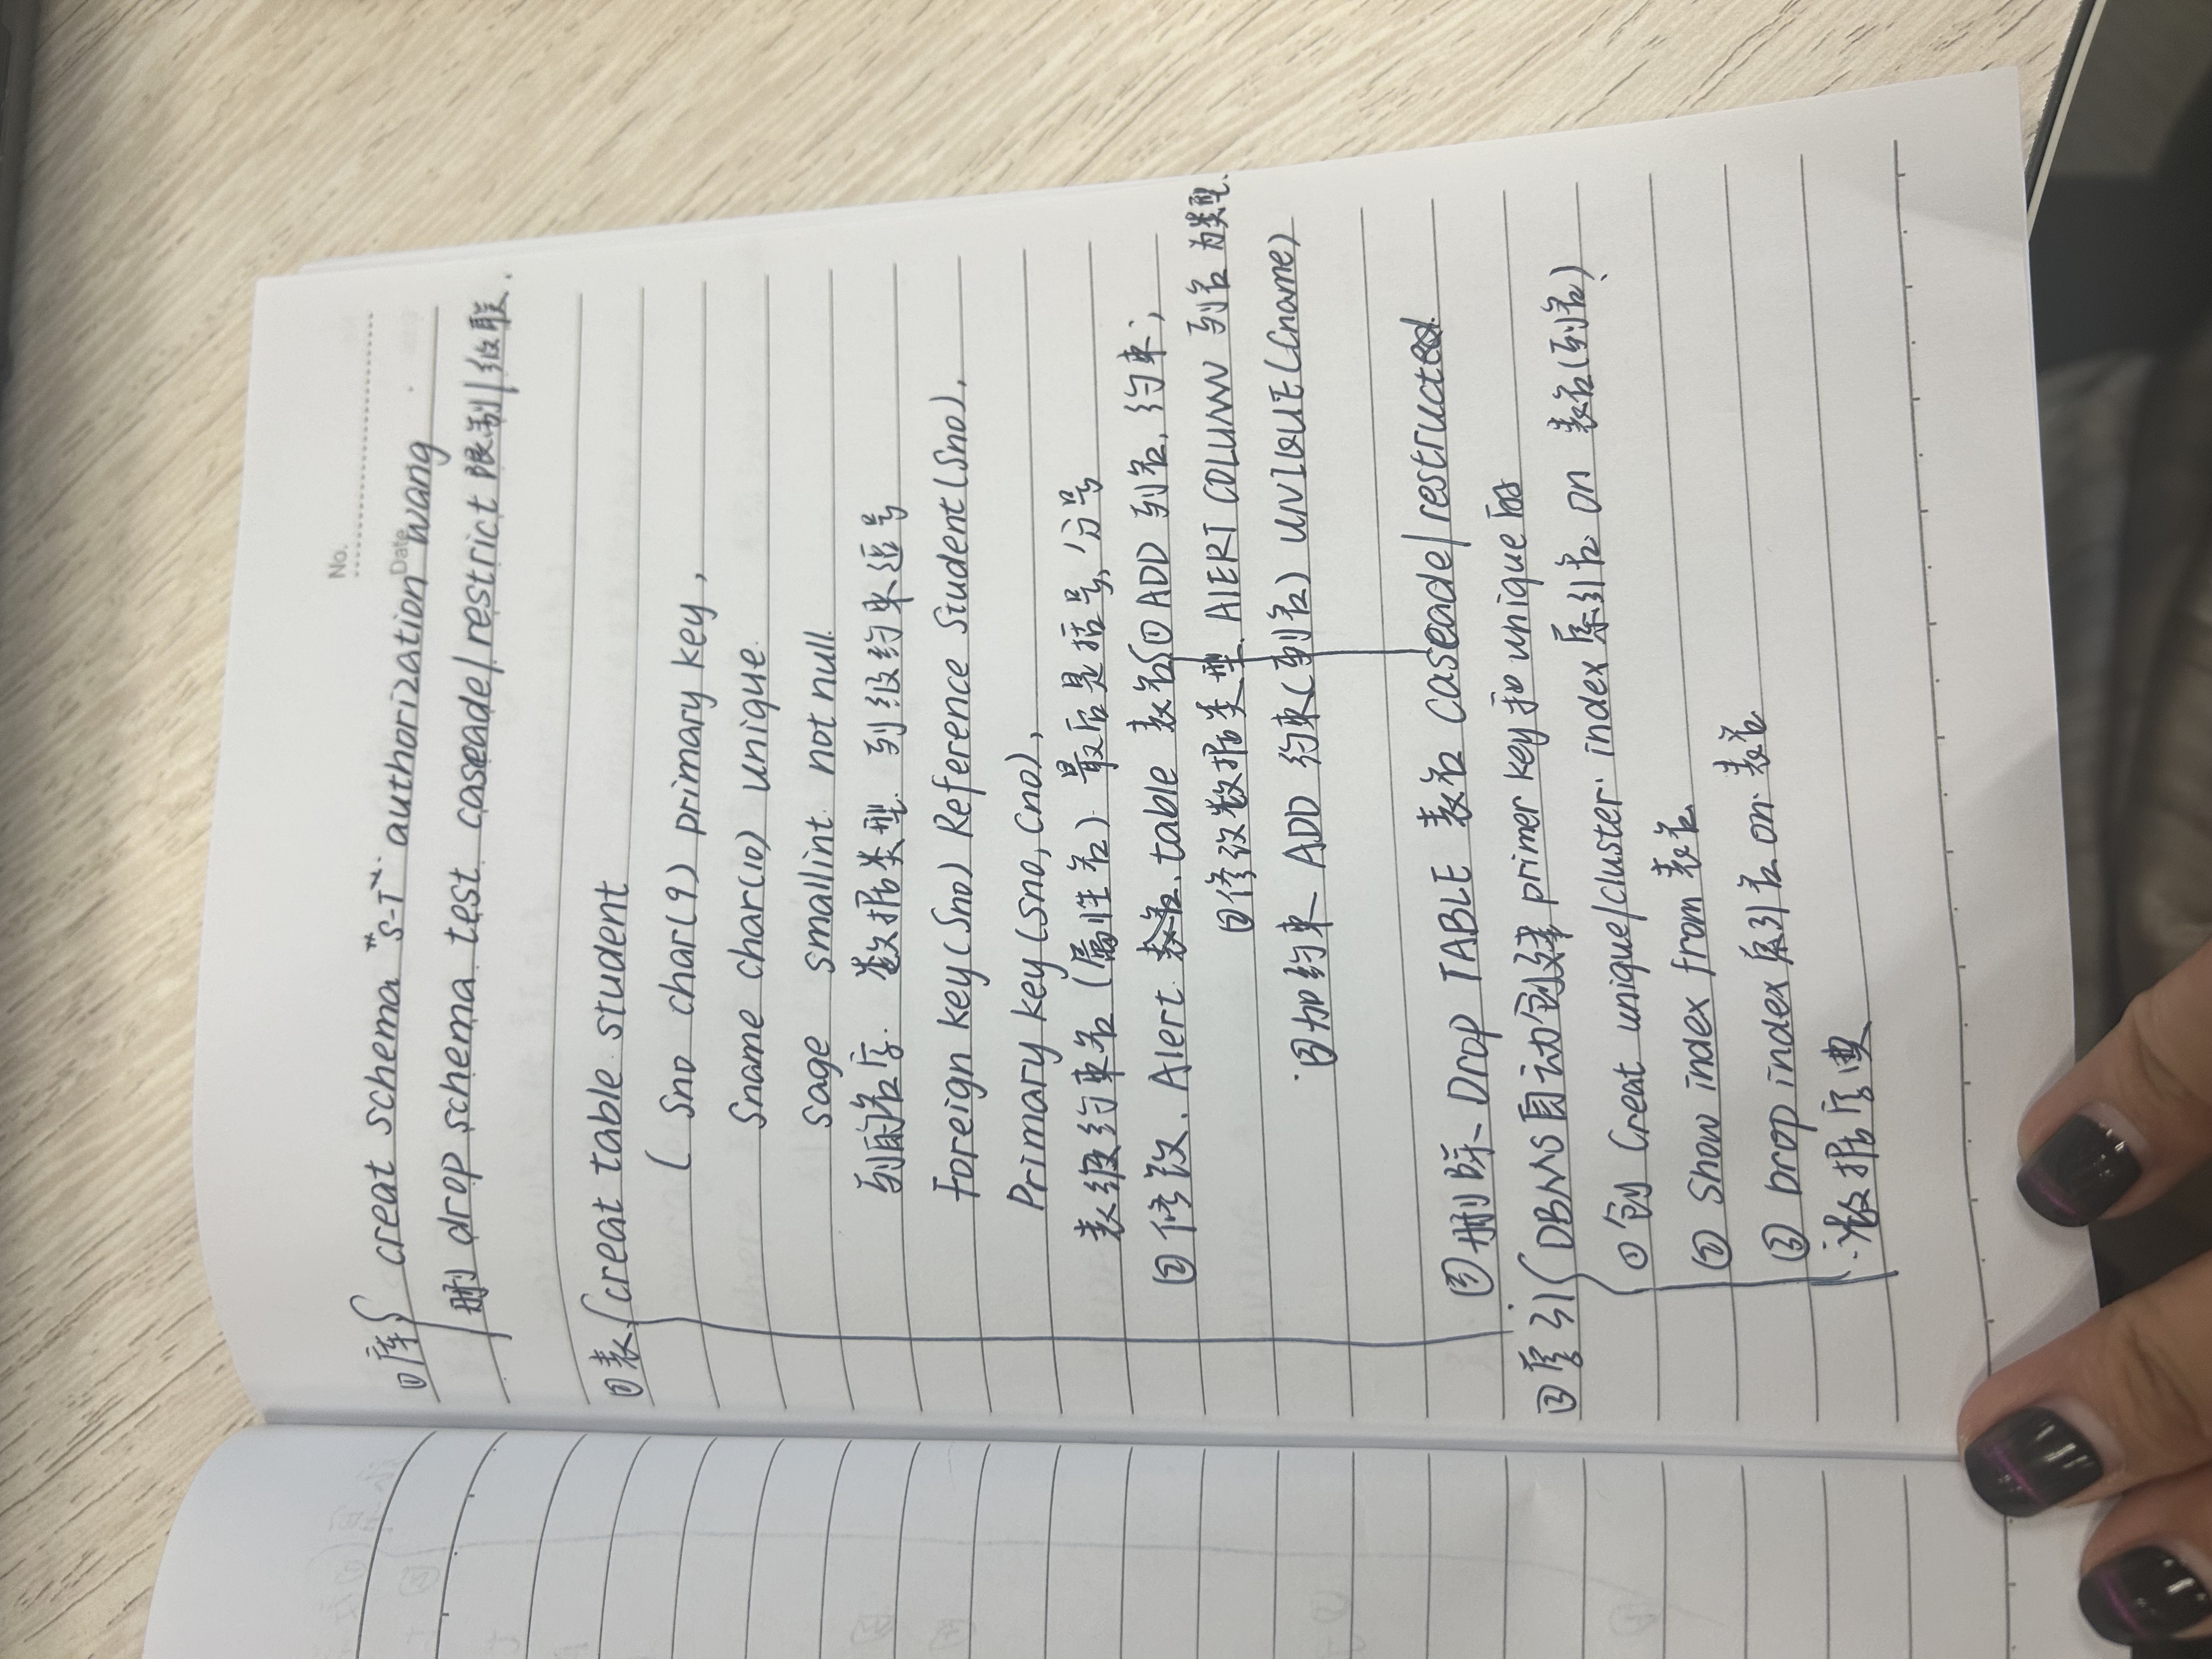 No.
Date
①库 creat schema "S-T" authorization wang
删 drop schema test caseade/restrict 限制/级联.
②表 creat table student
( Sno char(9) primary key,
Sname char(10) unique.
sage smallint not null.
列的名字. 数据类型. 列级约束逗号
Foreign key(Sno) Reference Student(Sno),
Primary key(Sno, Cno),
表级约束名(属性名) 最后是括号,分号
② 修改. Alert table 表名 ① ADD 列名, 约束;
②修改数据类型 AlERT COLUMN 列名 为类型.
③加约束 ADD 约束(列名) UNIQUE(Cname)
③删除 Drop TABLE 表名 caseade/restructed
③索引 DBMS自动创建 primer key 和 unique的
①创 Creat unique/cluster index 索引名 on 表名(列名)
② Show index from 表名
③ Drop index 索引名 on 表名
数据字典